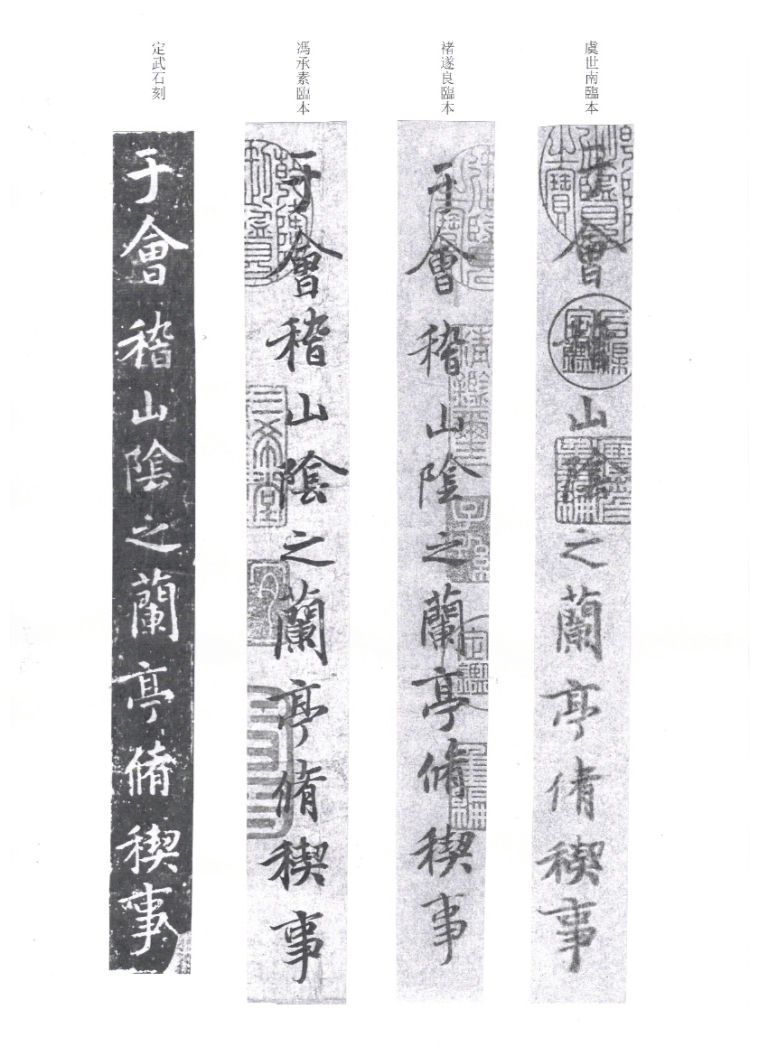 虞世南臨本
于會稽山陰之蘭亭脩稧事
褚遂良臨本
于會稽山陰之蘭亭脩稧事
馮承素臨本
于會稽山陰之蘭亭脩稧事
定武石刻
于會稽山陰之蘭亭脩稧事